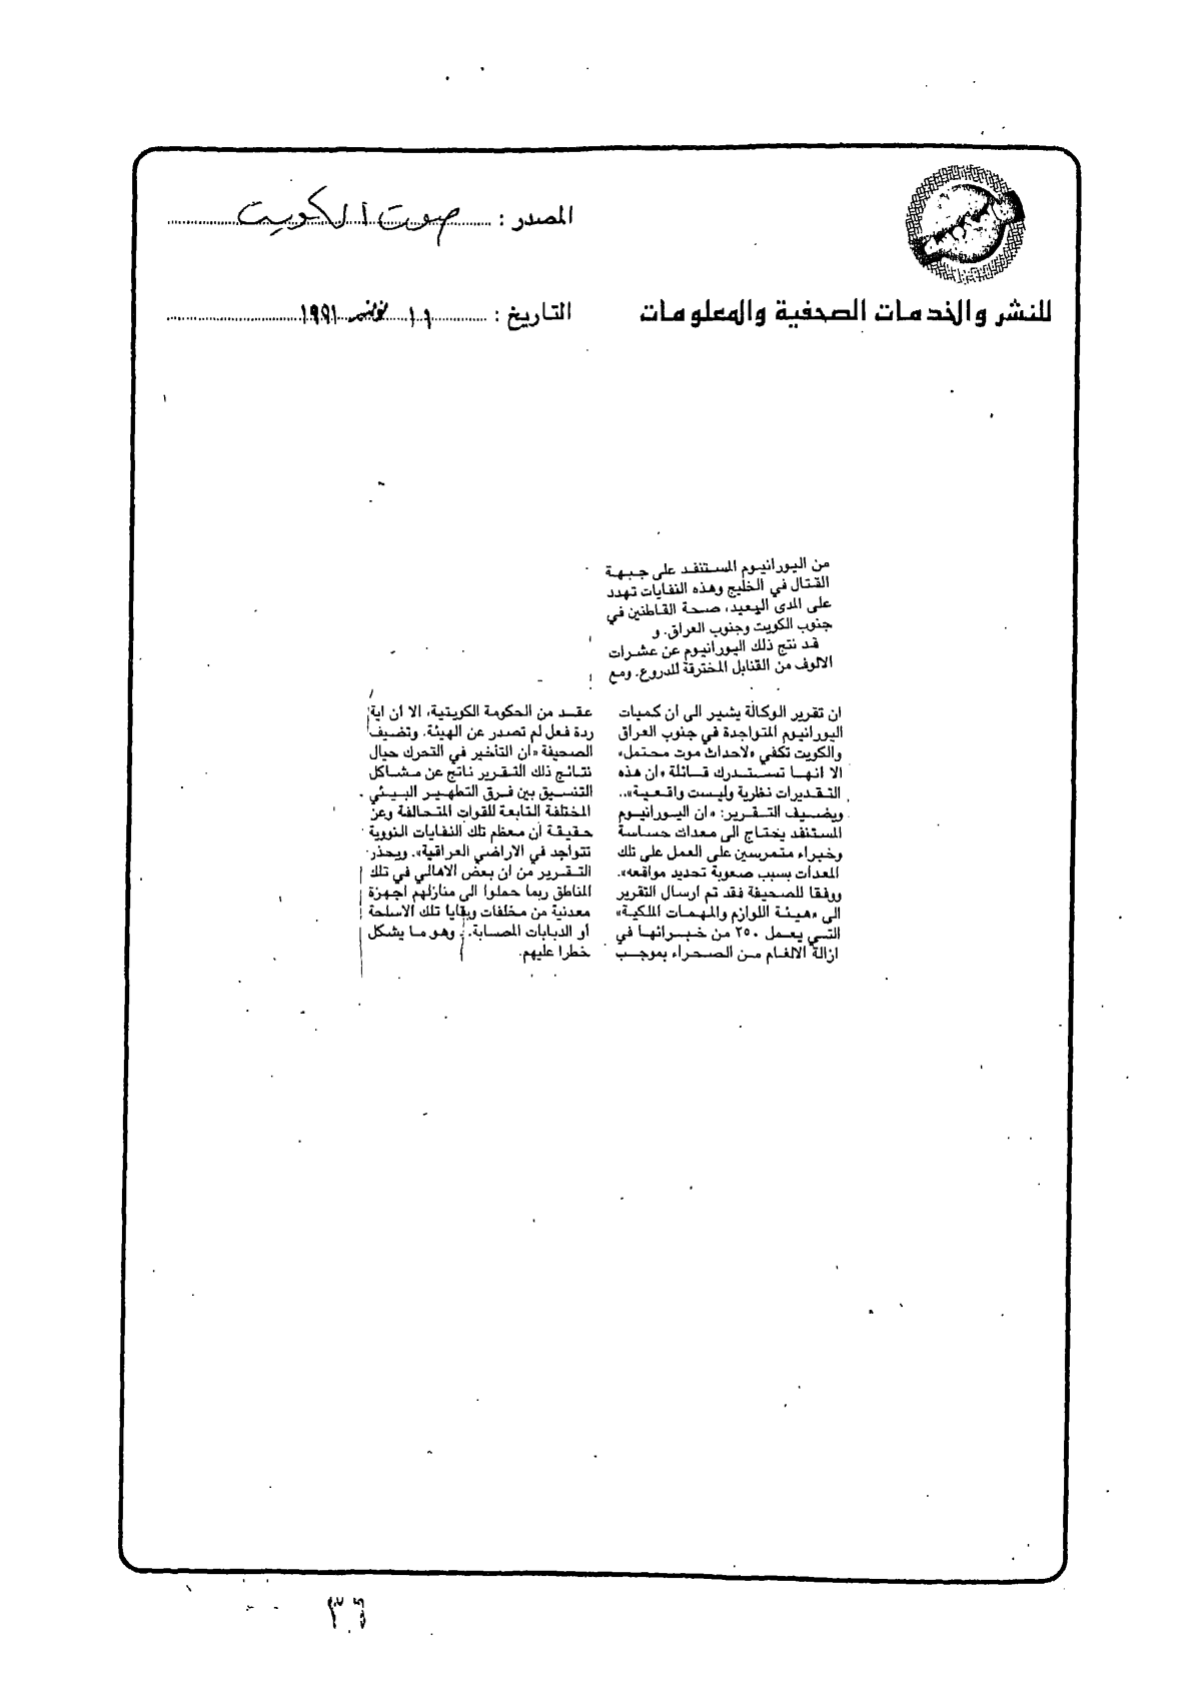 المصدر : صوت الكويت
للنشر والخدمات الصحفية والمعلومات
التاريخ : ١٦ نوفمبر ١٩٩١
من اليورانيوم المستنفد على جبهة
القتال في الخليج وهذه النفايات تهدد
على المدى البعيد، صحة القاطنين في
جنوب الكويت وجنوب العراق. و
قد نتج ذلك اليورانيوم عن عشرات
الالوف من القنابل المخترقة للدروع. ومع
ان تقرير الوكالة يشير الى أن كميات
اليورانيوم المتواجدة في جنوب العراق
والكويت تكفي «لاحداث موت محتمل»
الا انها تستدرك قائلة «ان هذه
التقديرات نظرية وليست واقعية»..
ويضيف التقرير: «ان اليورانيوم
المستنفد يحتاج الى معدات حساسة
وخبراء متمرسين على العمل على تلك
المعدات بسبب صعوبة تحديد مواقعه».
ووفقا للصحيفة فقد تم ارسال التقرير
الى «هيئة اللوازم والمهمات الملكية»
التي يعمل ٢٥٠ من خبرائها في
ازالة الالغام من الصحراء بموجب
عقد من الحكومة الكويتية، الا أن اية
ردة فعل لم تصدر عن الهيئة. وتضيف
الصحيفة «ان التأخير في التحرك حيال
نتائج ذلك التقرير ناتج عن مشاكل
التنسيق بين فرق التطهير البيئي
المختلفة التابعة للقوات المتحالفة وعن
حقيقة أن معظم تلك النفايات النووية
تتواجد في الاراضي العراقية». ويحذر
التقرير من ان بعض الاهالي في تلك
المناطق ربما حملوا الى منازلهم اجهزة
معدنية من مخلفات وبقايا تلك الاسلحة
أو الدبابات المصابة. وهو ما يشكل
خطرا عليهم.
٣٦